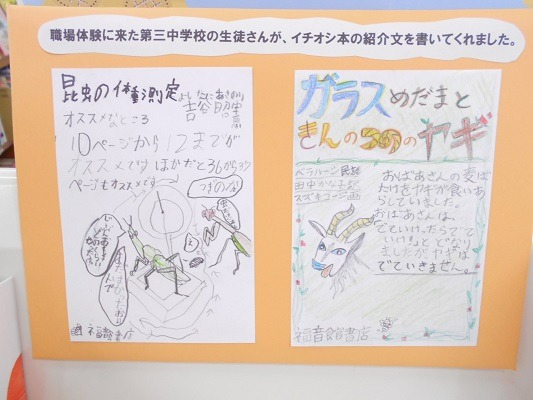 職場体験に来た第三中学校の生徒さんが、イチオシ本の紹介文を書いてくれました。
昆虫の体重測定
よしたにあきのり
オススメなところ
10ページから12までが
オススメです ほかだと36から37
ページもオススメです
福音館書店
ガラスめだまと
きんのつののヤギ
ベラルーシ民話
田中かな子訳
スズキコージ画
おばあさんの麦ば
たけをヤギが食いあ
らしていました。
おばあさんは、
でていけったらでて
いけ！とどなり
ましたがヤギは
でていきません。
福音館書店